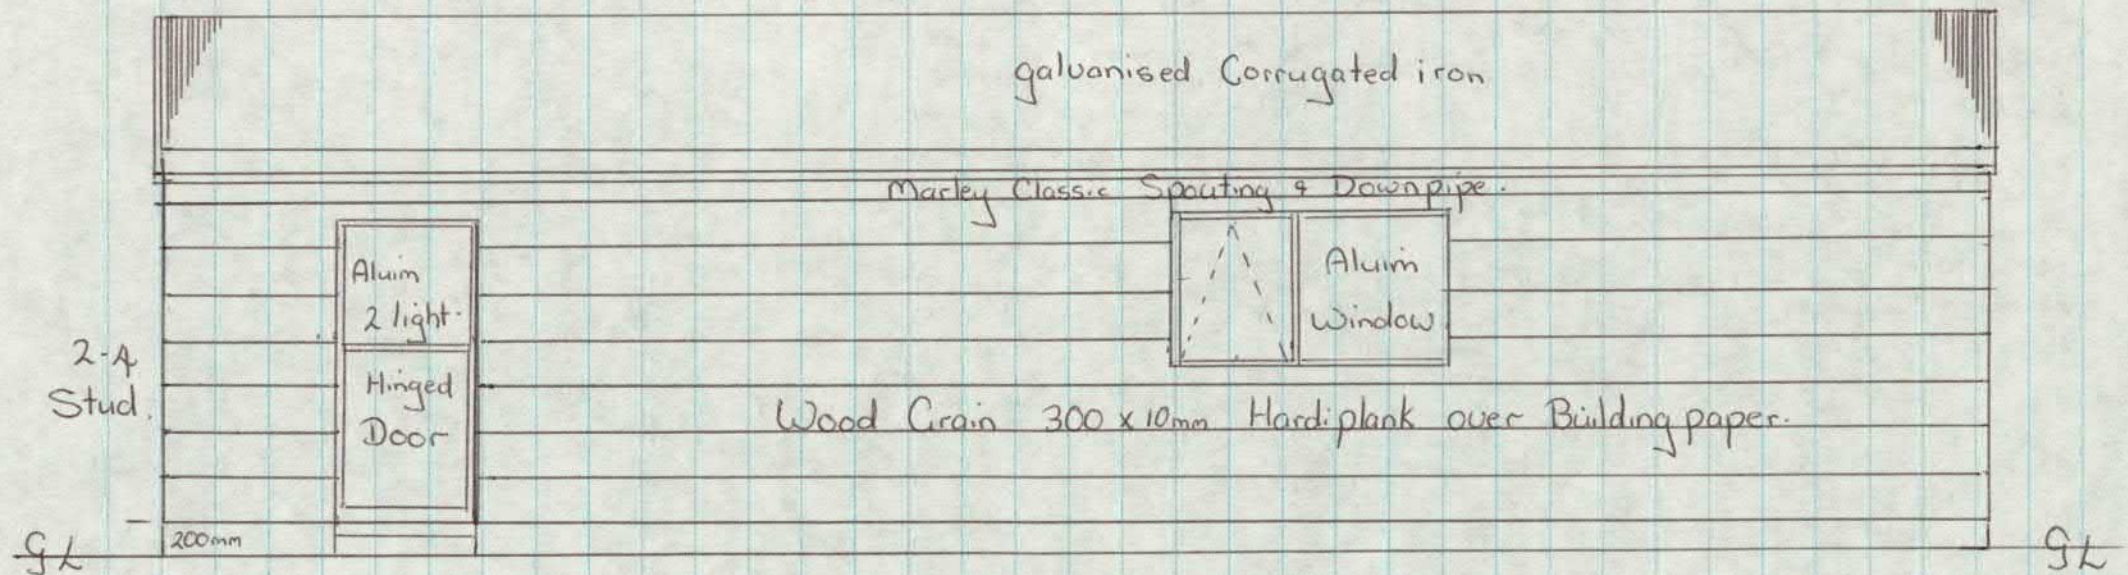 galvanised Corrugated iron
Marley Classic Spouting & Downpipe.
Aluim
2 light.
Hinged
Door
Aluim
Window
2-4
Stud.
Wood Grain 300 x 10mm Hardiplank over Building paper.
200mm
GL
GL